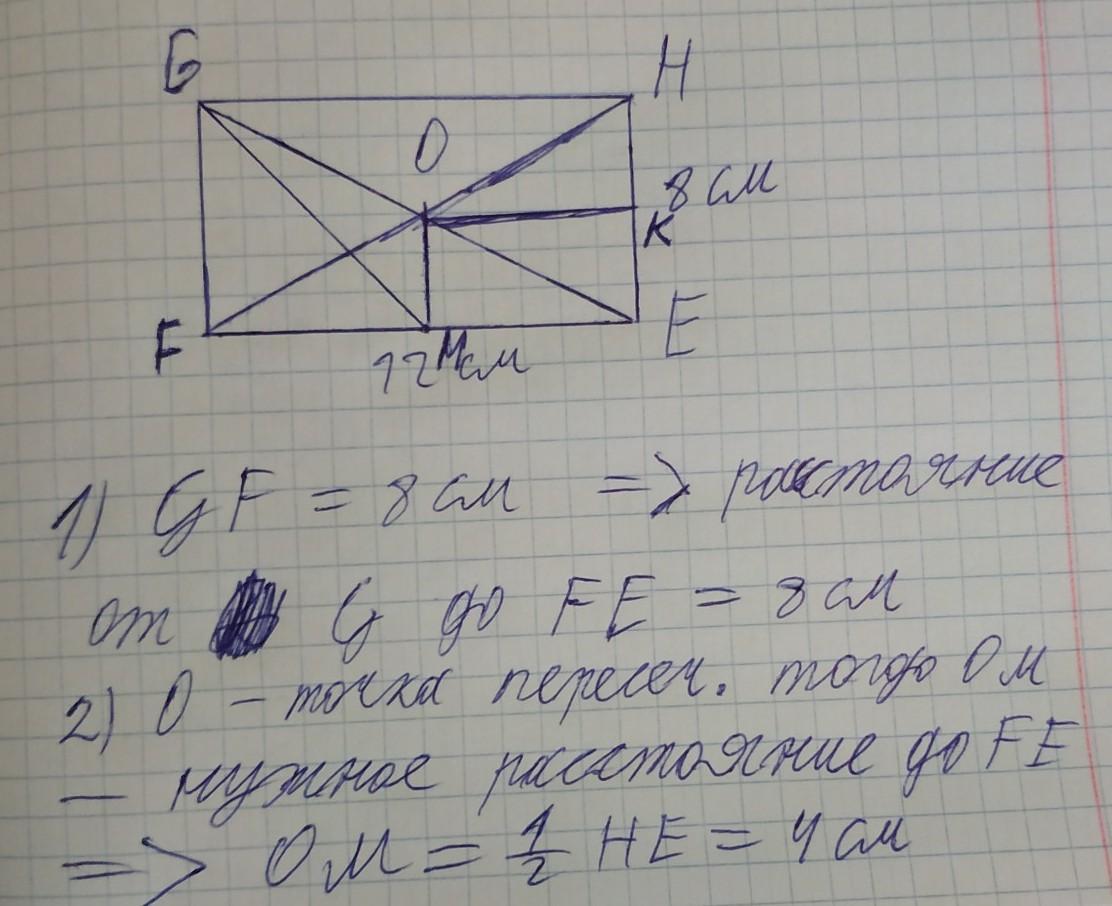 G
H
O
8 см
K
F
E
12 см
M
1) GF = 8 см => расстояние
от G до FE = 8 см
2) O - точка пересеч. тогда OM
— нужное расстояние до FE
=> OM = 1/2 HE = 4 см